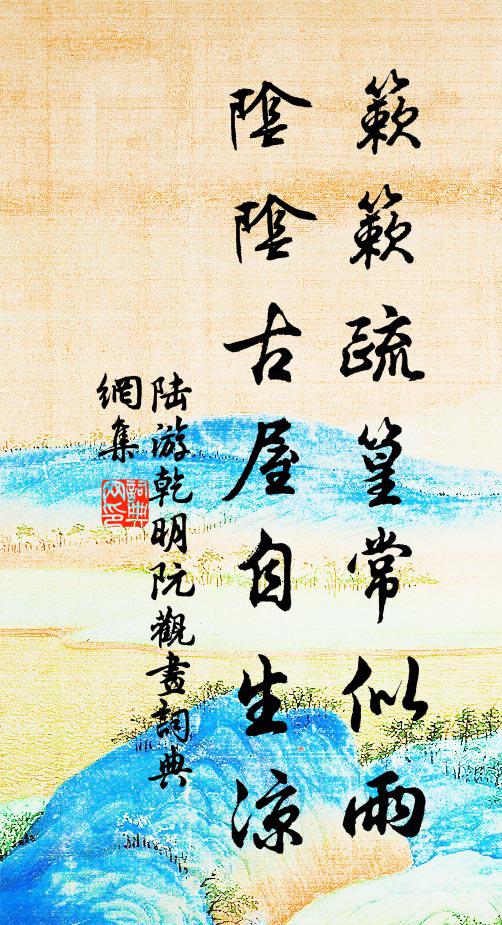 簌簌疏篁常似雨
陰陰古屋自生涼
陸游乾明院觀畫詞典
網集